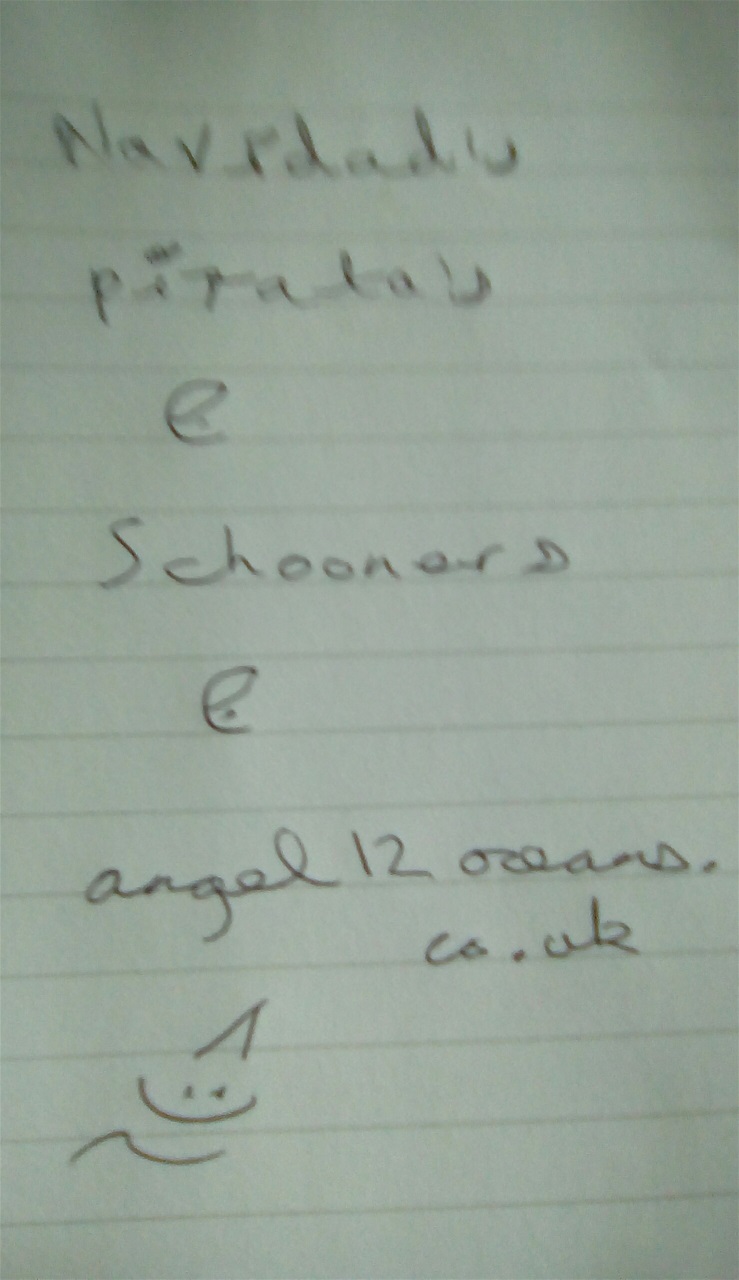 Navidads
piratas
e
Schooners
e
angel 12 oceans.
co.uk